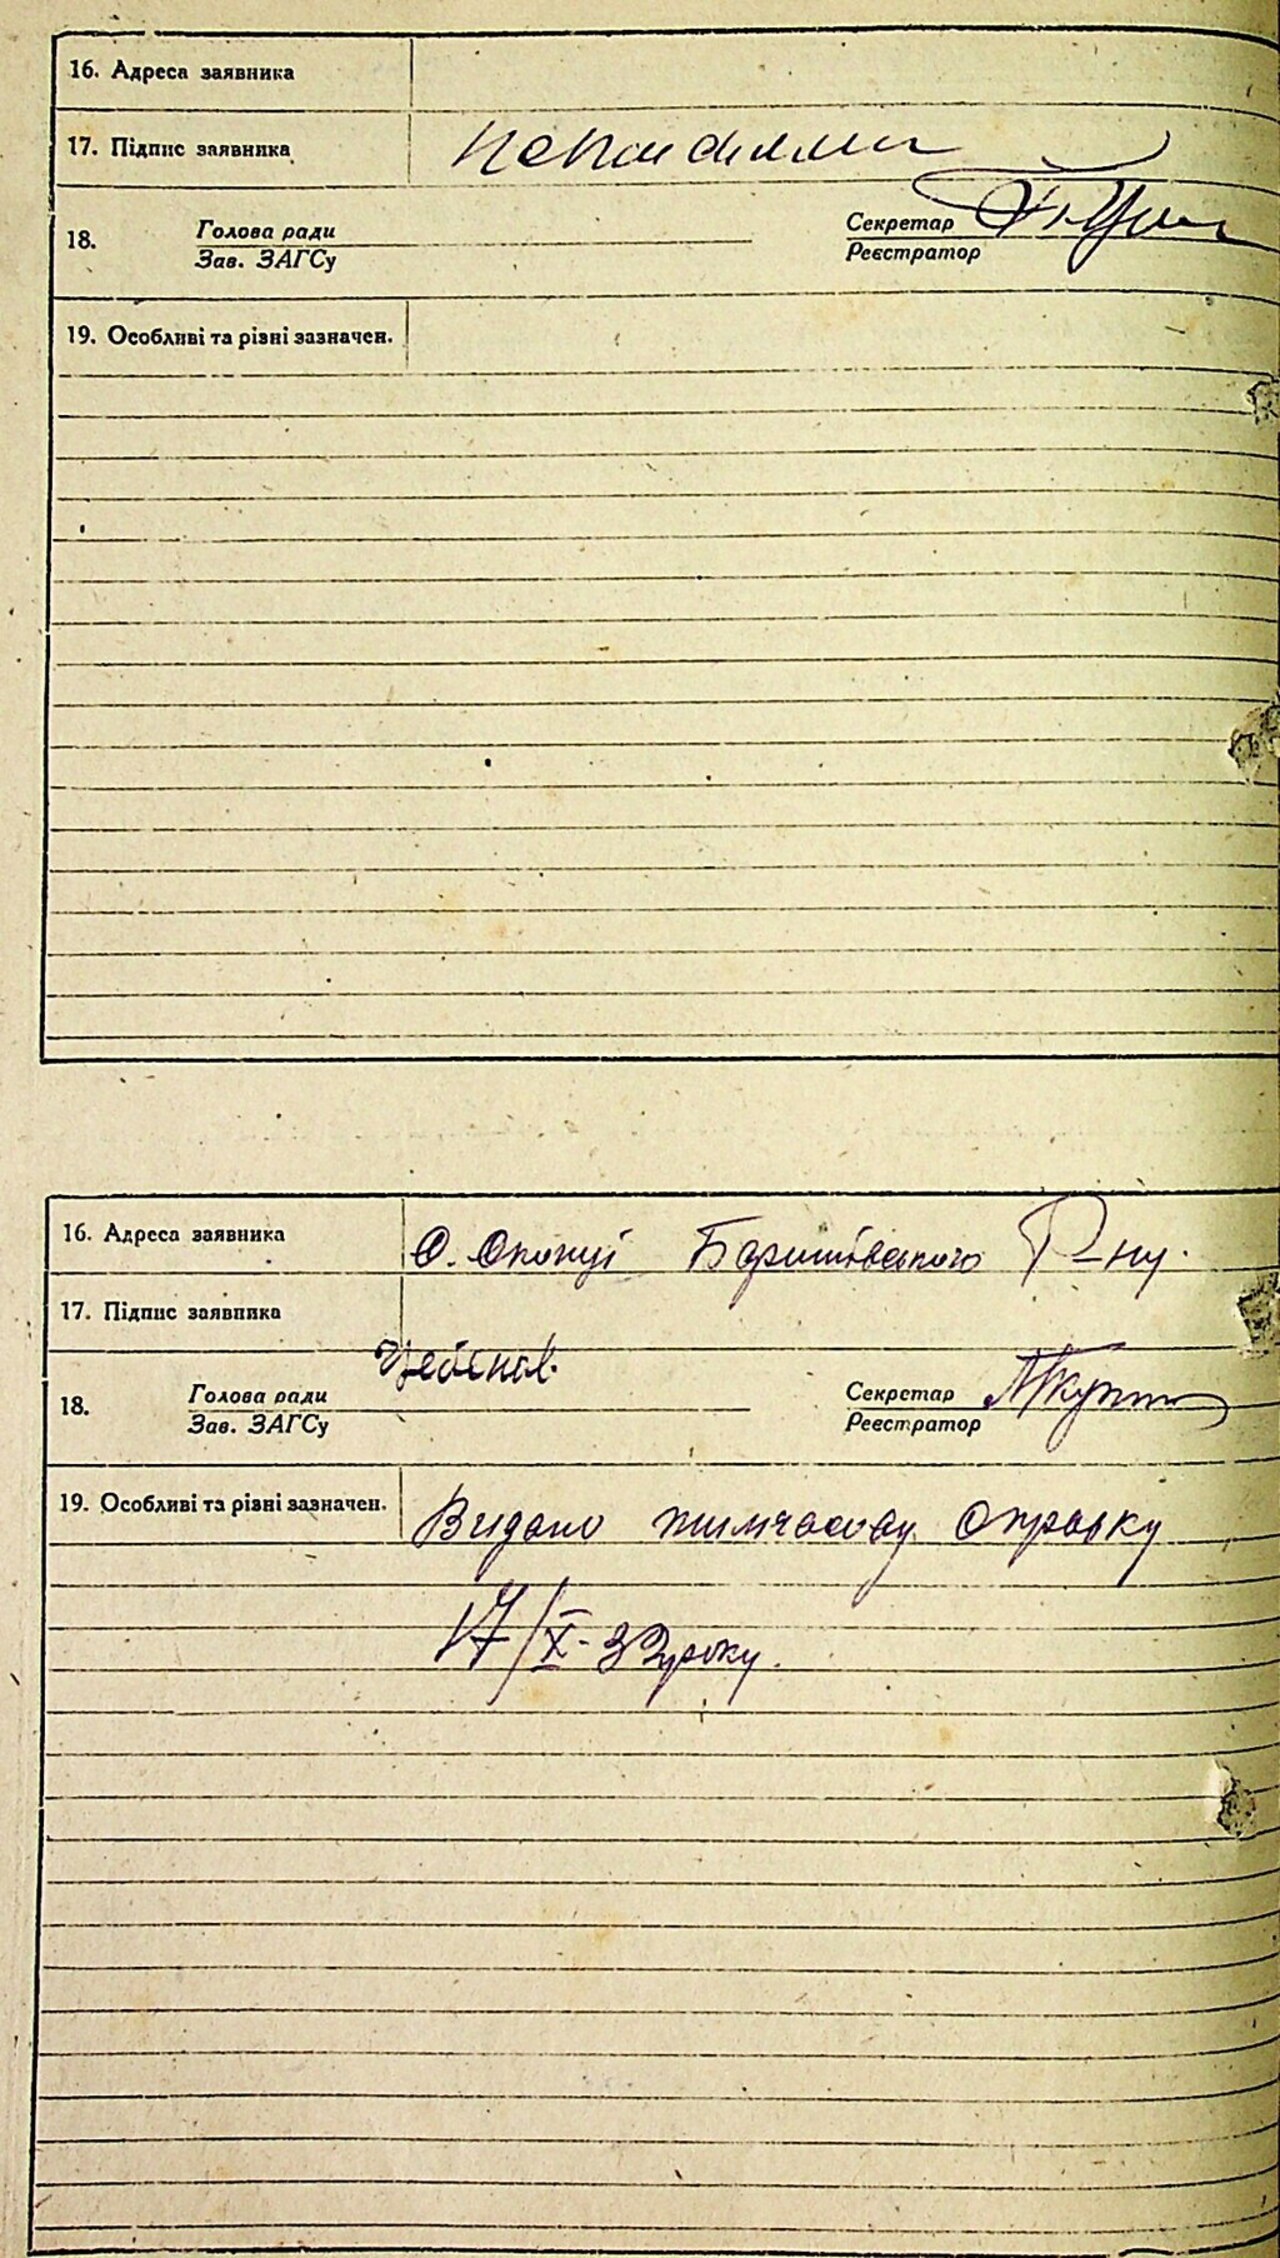 16. Адреса заявника
17. Підпис заявника
18. Голова ради Секретар
Зав. ЗАГСу Реєстратор
19. Особливі та різні зазначен.
16. Адреса заявника Баришівського Р-ну.
17. Підпис заявника
18. Голова ради Секретар
Зав. ЗАГСу Реєстратор
19. Особливі та різні зазначен. Видано тимчасову справку
17/X-32 року.